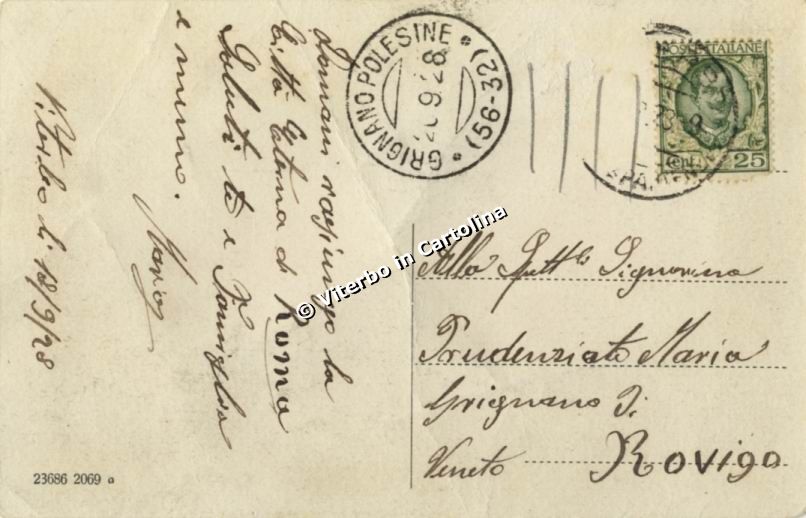 Domani raggiungo la
Città Eterna di Roma
Saluti te e Famiglia
e nonno.
Viterbo li 18/9/28
GRIGNANO POLESINE * (56-32) *
20.9.28
POSTE ITALIANE
CENT. 25
Alla Gent. Signorina
Prudenziato Maria
Grignano Di
Veneto Rovigo
23686 2069 a
© Viterbo in Cartolina